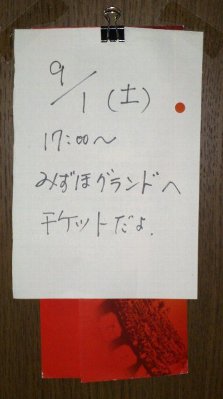 9/1(土)
17:00〜
みずほグランドへ
チケットだよ.